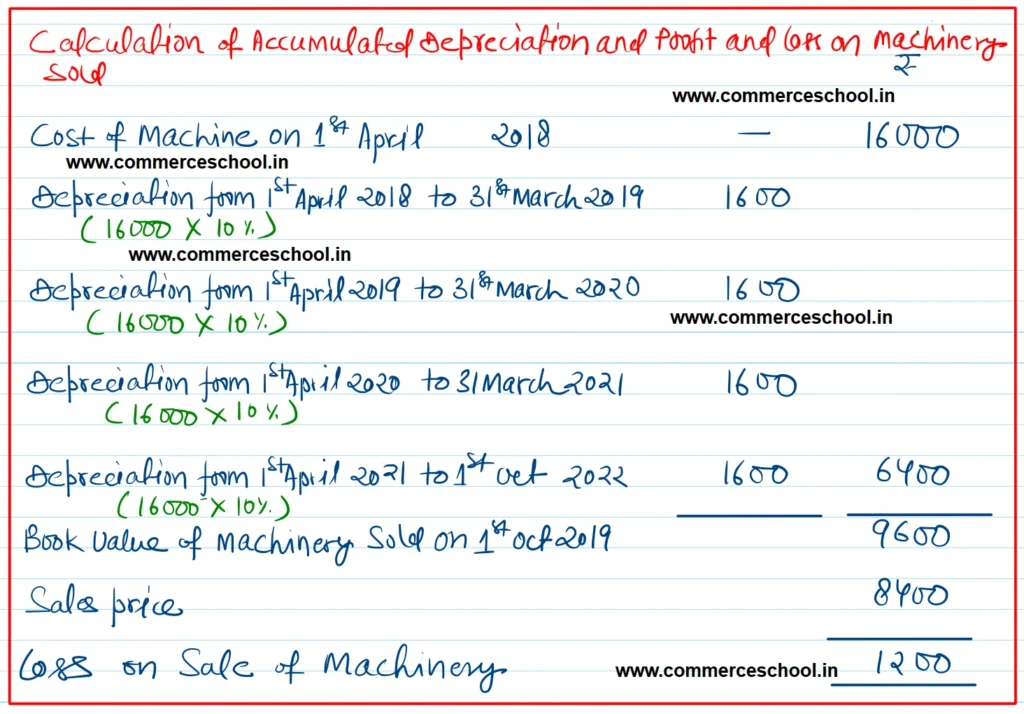 Calculation of Accumulated Depreciation and Profit and Loss on Machinery
Sold
₹
www.commerceschool.in
Cost of Machine on 1st April 2018 — 16000
www.commerceschool.in
Depreciation from 1st April 2018 to 31st March 2019 1600
(16000 X 10%)
www.commerceschool.in
Depreciation from 1st April 2019 to 31st March 2020 1600
(16000 X 10%)
www.commerceschool.in
Depreciation from 1st April 2020 to 31 March 2021 1600
(16000 X 10%)
Depreciation from 1st April 2021 to 1st Oct 2022 1600 6400
(16000 X 10%)
Book Value of Machinery Sold on 1st Oct 2019 9600
Sales price 8400
Loss on Sale of Machinery 1200
www.commerceschool.in